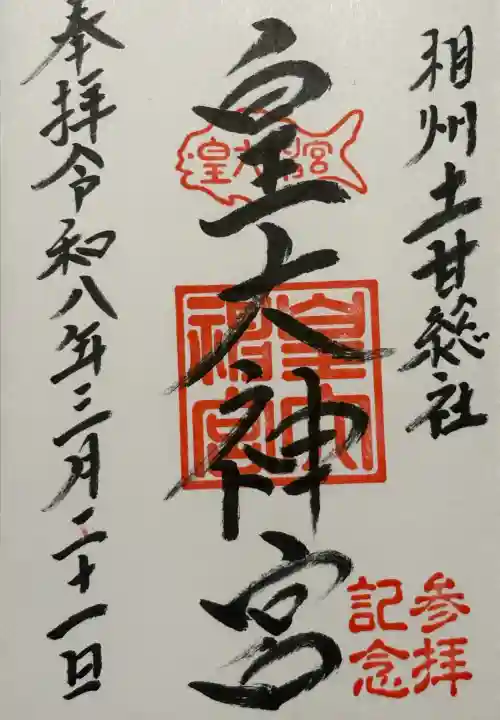 相州土甘総社
皇大神宮
皇大神宮
皇大
神宮
参拝
記念
奉拝令和八年三月二十一日